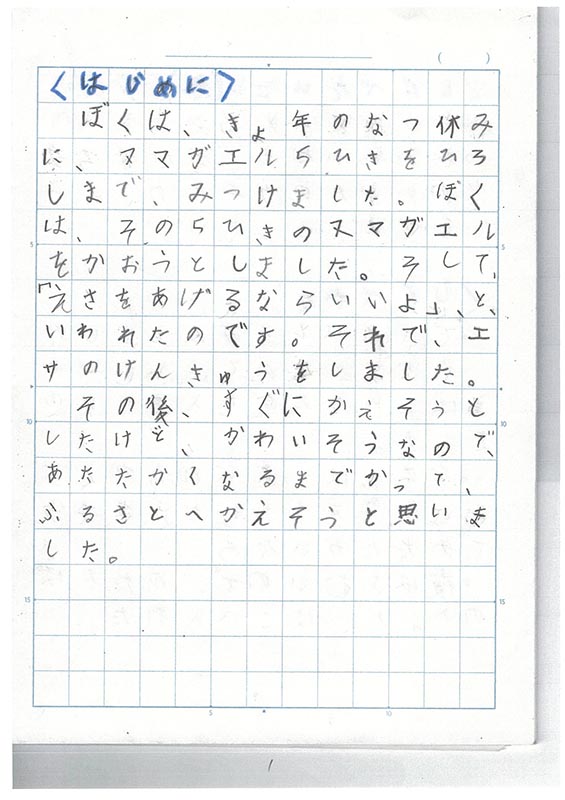 〈はじめに〉
ぼくは、きょ年のなつ休み
に、ヌマガエル5ひきをひろ
しまで、みつけました。ぼく
は、その5ひきのヌマガエル
をかおうとしました。そして、
「えさをあげるならいいよ」、と、
いわれたのです。それで、エ
サのけんきゅうをしました。
その後、すぐにかえそうと
したけど、かわいそうなので、
あたたかくなるまでかって、
ふるさとへかえそうと思いま
した。
5
10
15
5
10
15
5
10
1